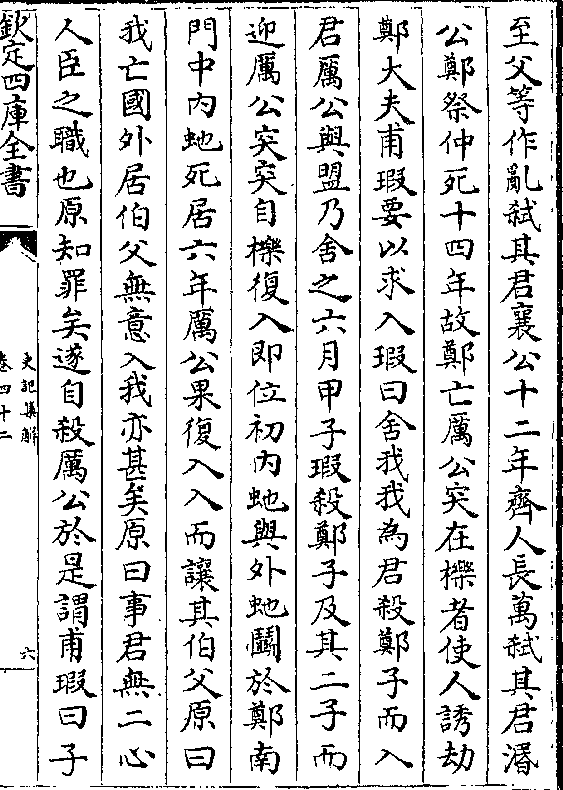 至父等作亂弑其君襄公十二年齊人長萬弑其君湣
公鄭祭仲死十四年故鄭亡厲公突在櫟者使人誘劫
鄭大夫甫瑕要以求入瑕曰舍我我為君殺鄭子而入
君厲公與盟乃舍之六月甲子瑕殺鄭子及其二子而
迎厲公突突自櫟復入即位初內虵與外虵鬭於鄭南
門中內虵死居六年厲公果復入入而讓其伯父原曰
我亡國外居伯父無意入我亦甚矣原曰事君無二心
人臣之職也原知罪矣遂自殺厲公於是謂甫瑕曰子
欽定四庫全書
史記集解
卷四十二
六